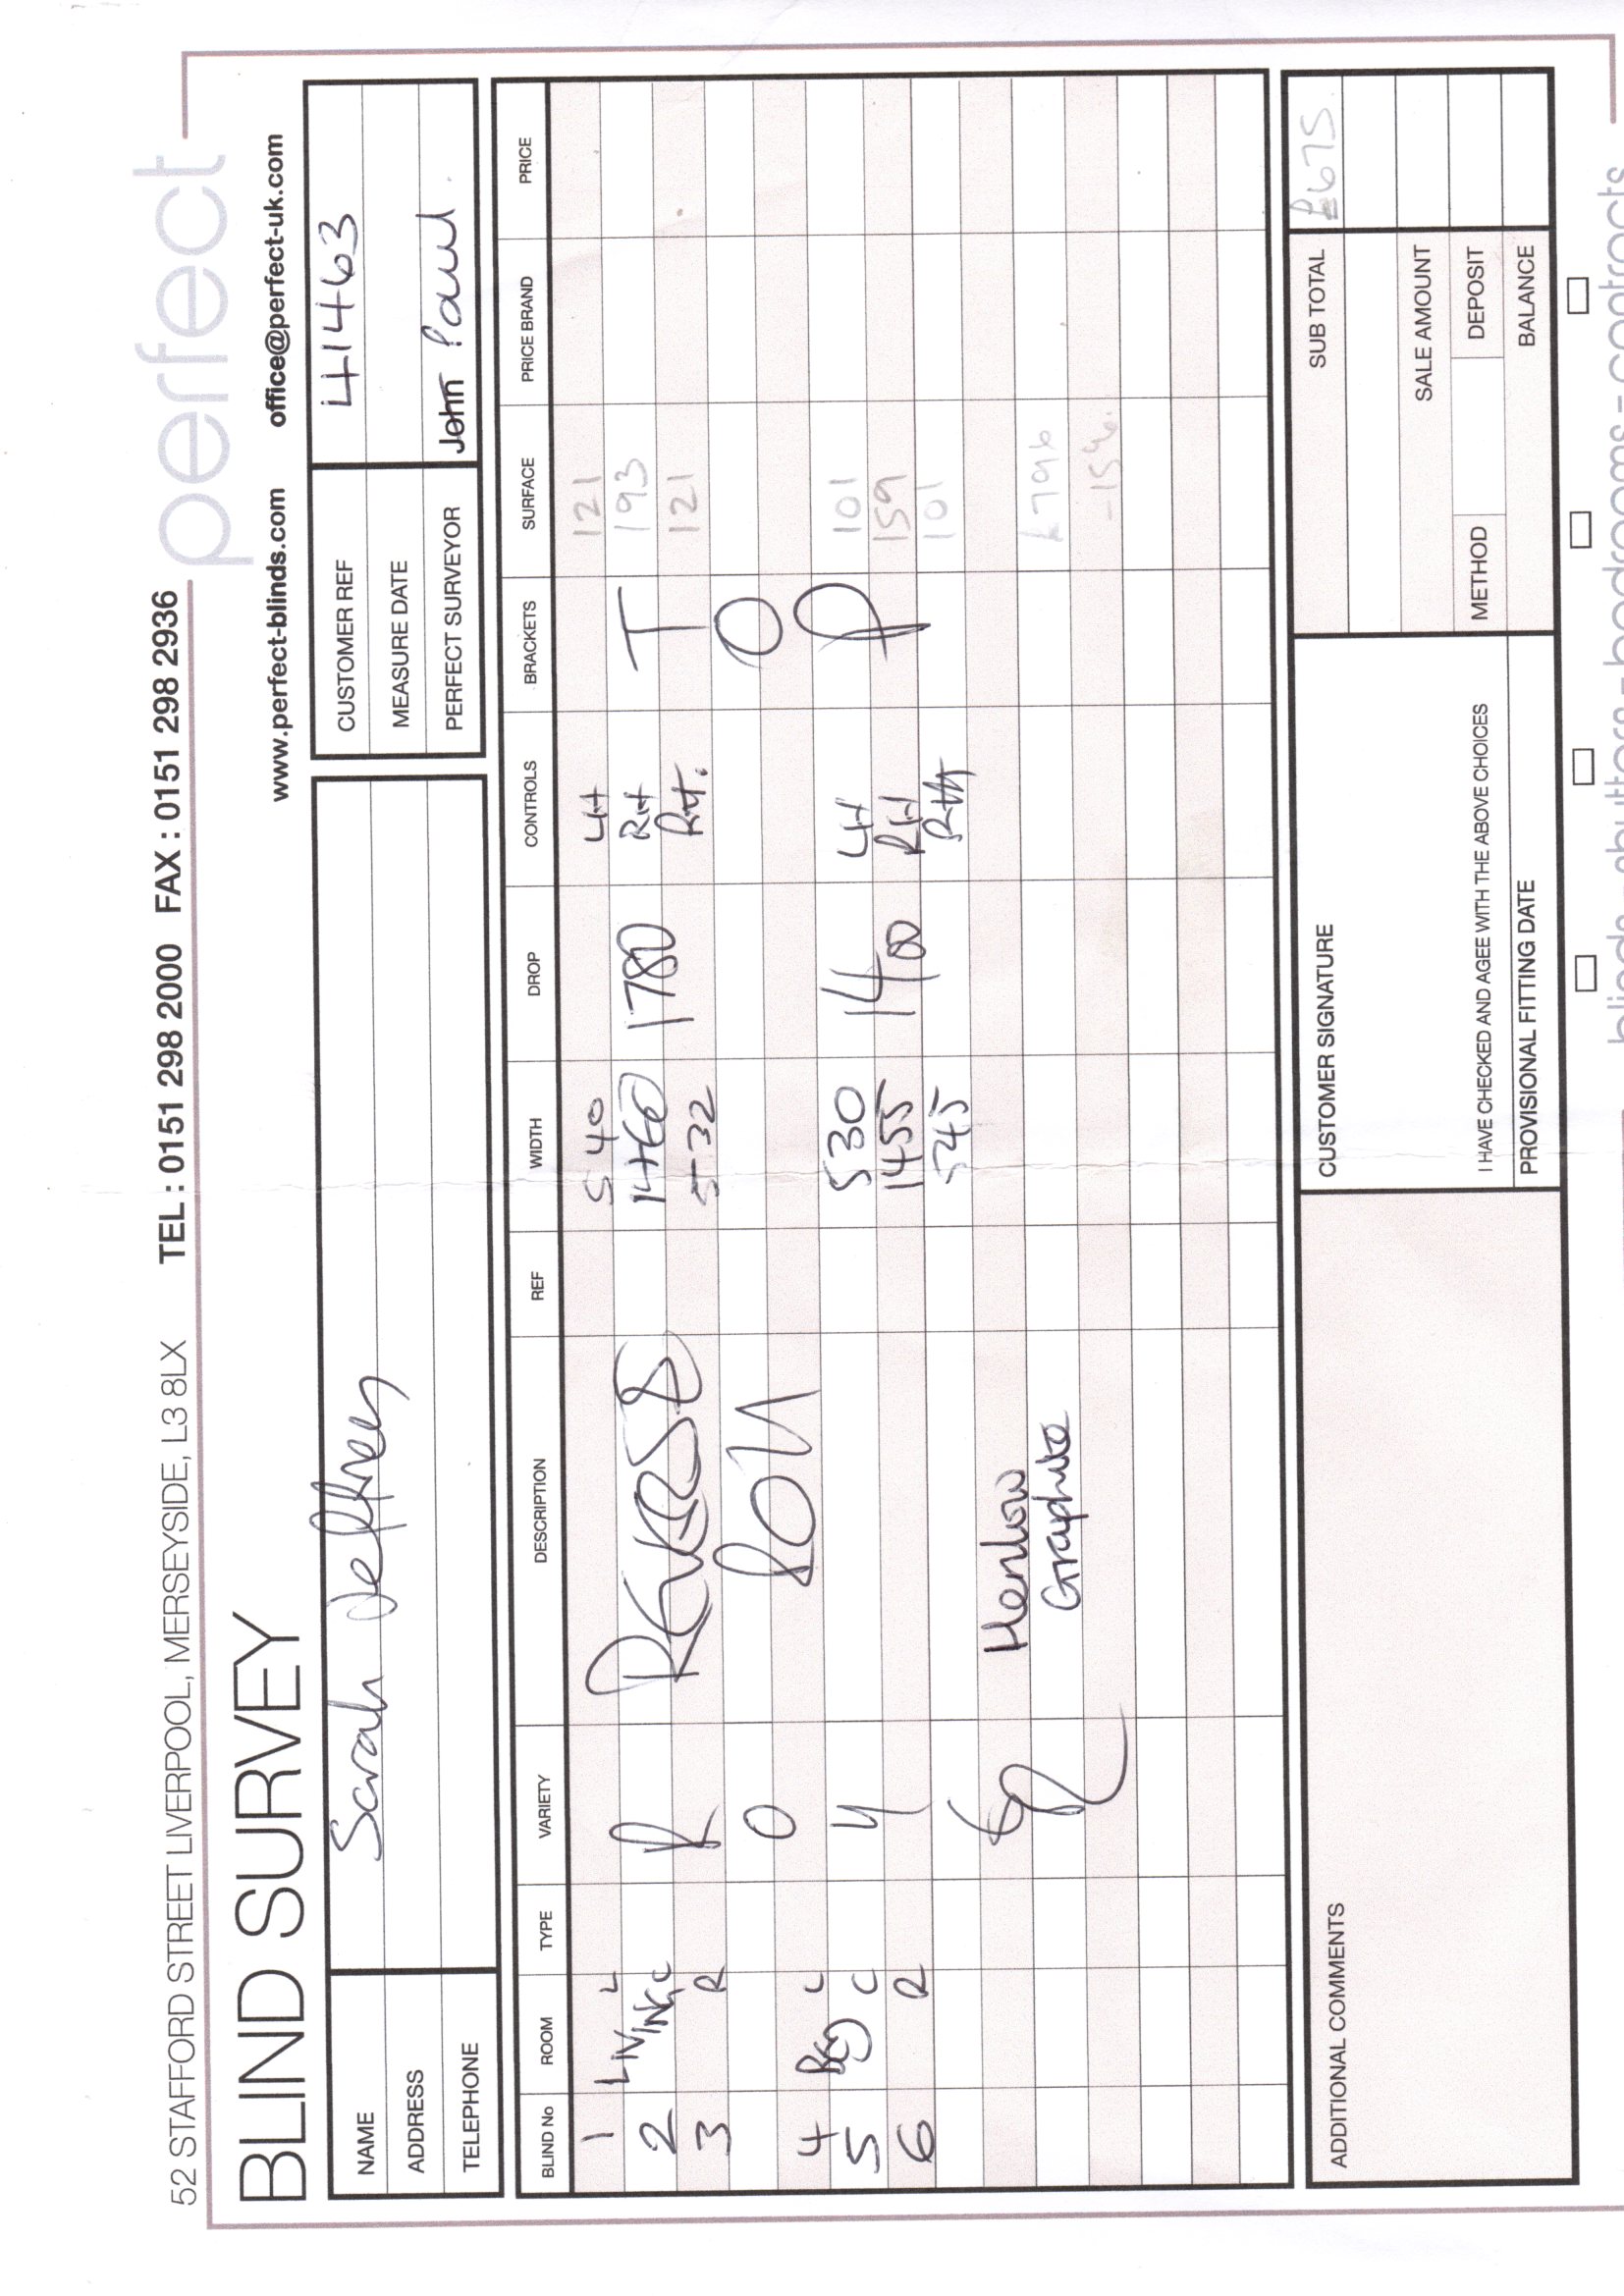 52 STAFFORD STREET LIVERPOOL, MERSEYSIDE, L3 8LX TEL : 0151 298 2000 FAX : 0151 298 2936
perfect
BLIND SURVEY
www.perfect-blinds.com office@perfect-uk.com
NAME Sarah Jeffrey
ADDRESS
TELEPHONE
CUSTOMER REF 41463
MEASURE DATE
PERFECT SURVEYOR John Paul
BLIND No ROOM TYPE VARIETY DESCRIPTION REF WIDTH DROP CONTROLS BRACKETS SURFACE PRICE BRAND PRICE
1 LIVING L 540 LH 121
2 C R REVERSE 1460 1780 RH T 193
3 R 532 RH. 121
O ROLL O
4 L 530 LH 101
5 BED C 1455 1400 RH P 159
6 R 545 RH 101
Henlow
Graphite £796
-15%.
ADDITIONAL COMMENTS
CUSTOMER SIGNATURE
I HAVE CHECKED AND AGEE WITH THE ABOVE CHOICES
PROVISIONAL FITTING DATE
SUB TOTAL £675
SALE AMOUNT
METHOD DEPOSIT
BALANCE
blinds - shutters - bedrooms - contracts